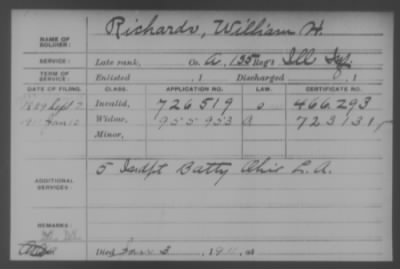 NAME OF SOLDIER: Richards, William H.
SERVICE: Late rank, Co. A, 135 Reg't Ill Inf.
TERM OF SERVICE: Enlisted , 1 Discharged , 1
DATE OF FILING. CLASS. APPLICATION NO. LAW. CERTIFICATE NO.
1889 Sept 2 Invalid, 726519 466.293
191 Jan 12 Widow, 955953 723131
Minor,
ADDITIONAL SERVICES: 5 Indpt Batty Ohio L.A.
REMARKS:
Died Jan 3, 1911, at